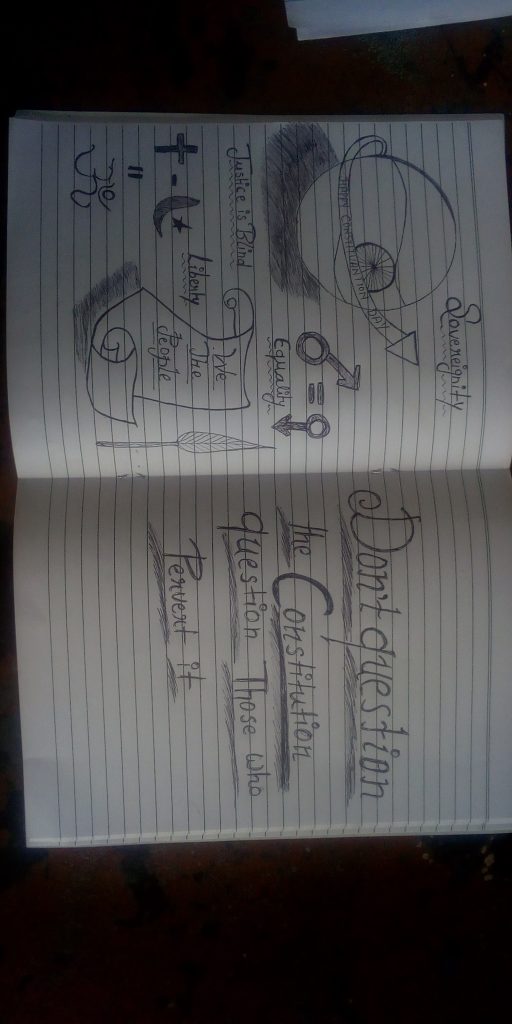 Sovereignity
HAPPY DAY
Equality
Justice is Blind
Liberty
We
The
People
Don't question
the Constitution
question Those who
Pervert it